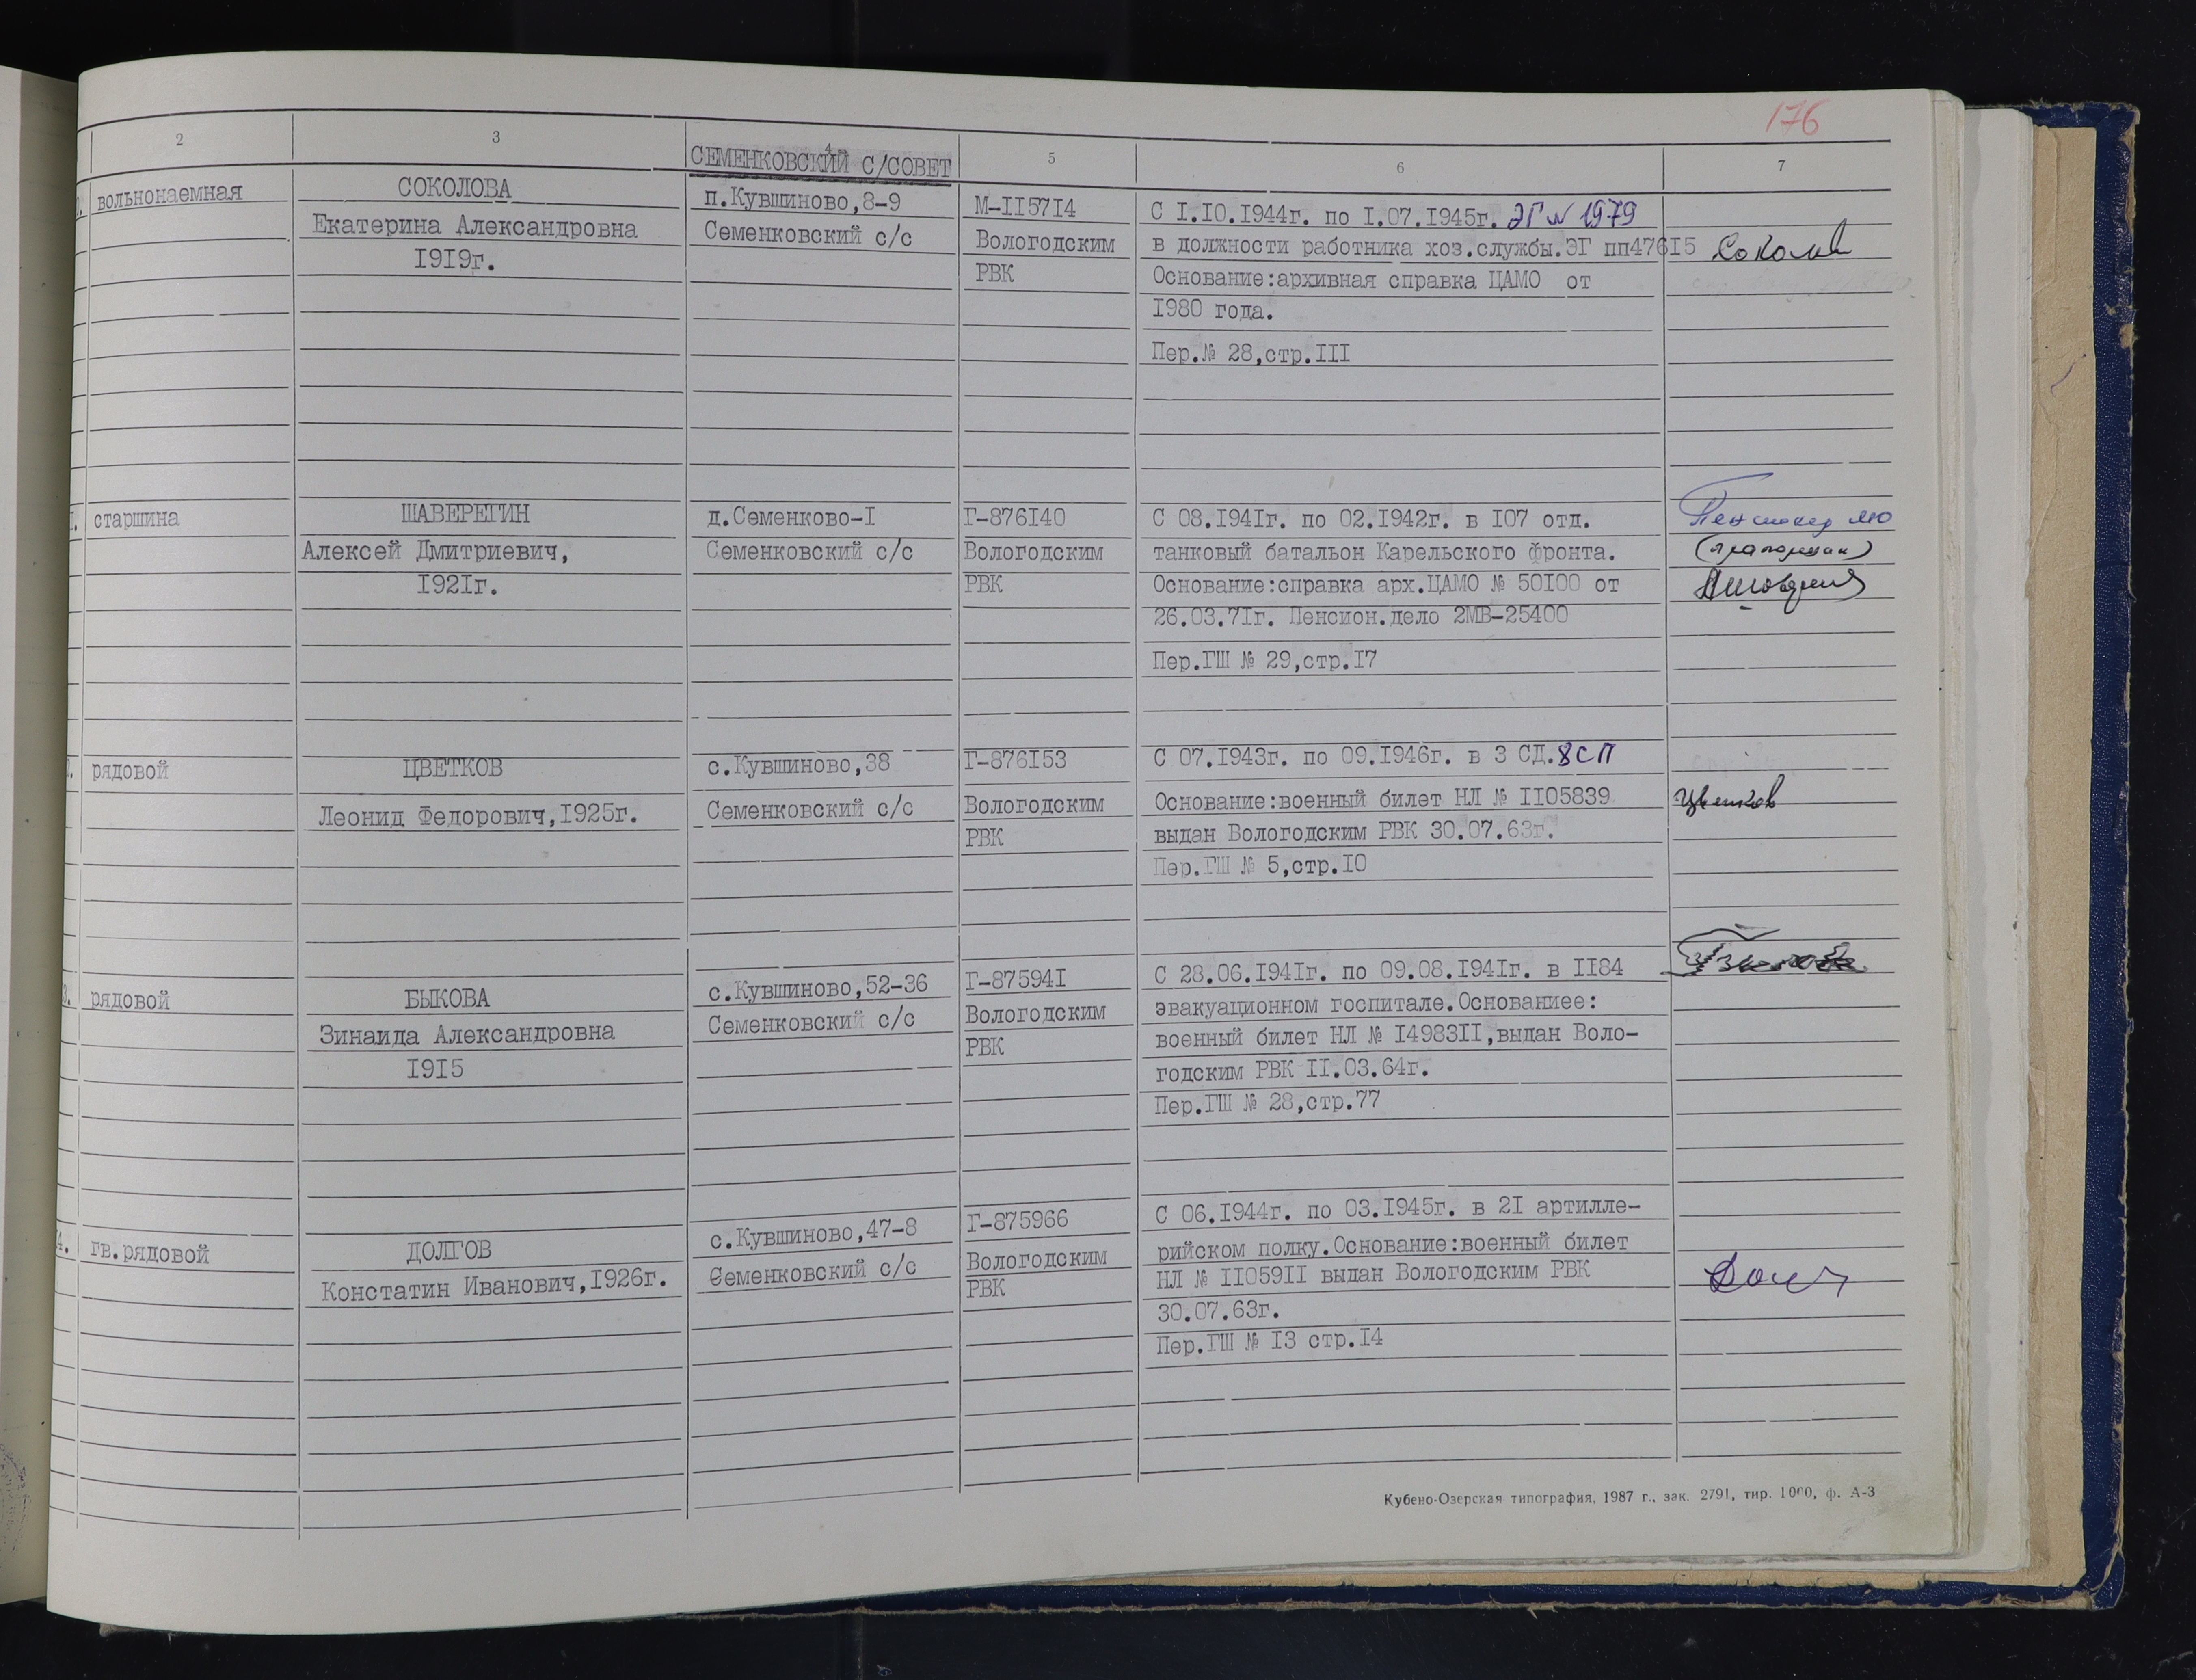 176
2 3 4 5 6 7
СЕМЕНКОВСКИЙ С/СОВЕТ
вольнонаемная
СОКОЛОВА
Екатерина Александровна
1919г.
п.Кувшиново,8-9
Семенковский с/с
М-115714
Вологодским
РВК
С 1.10.1944г. по 1.07.1945г. ЭГ № 1979
в должности работника хоз.службы.ЭГ пп47615
Основание:архивная справка ЦАМО от
1980 года.
Пер.№ 28,стр.111
старшина
ШАВЕРЕГИН
Алексей Дмитриевич,
1921г.
д.Семенково-1
Семенковский с/с
Г-876140
Вологодским
РВК
С 08.1941г. по 02.1942г. в 107 отд.
танковый батальон Карельского фронта.
Основание:справка арх.ЦАМО № 50100 от
26.03.71г. Пенсион.дело 2МВ-25400
Пер.ГШ № 29,стр.17
(прапорщик)
рядовой
ЦВЕТКОВ
Леонид Федорович,1925г.
с.Кувшиново,38
Семенковский с/с
Г-876153
Вологодским
РВК
С 07.1943г. по 09.1946г. в 3 СД.8СП
Основание:военный билет НЛ № 1105839
выдан Вологодским РВК 30.07.63г.
Пер.ГШ № 5,стр.10
Цветков
рядовой
БЫКОВА
Зинаида Александровна
1915
с.Кувшиново,52-36
Семенковский с/с
Г-875941
Вологодским
РВК
С 28.06.1941г. по 09.08.1941г. в 1184
эвакуационном госпитале.Основаниее:
военный билет НЛ № 1498311,выдан Воло-
годским РВК 11.03.64г.
Пер.ГШ № 28,стр.77
4. гв.рядовой
ДОЛГОВ
Констатин Иванович,1926г.
с.Кувшиново,47-8
Семенковский с/с
Г-875966
Вологодским
РВК
С 06.1944г. по 03.1945г. в 21 артилле-
рийском полку.Основание:военный билет
НЛ № 1105911 выдан Вологодским РВК
30.07.63г.
Пер.ГШ № 13 стр.14
Кубено-Озерская типография, 1987 г., зак. 2791, тир. 1000, ф. А-3